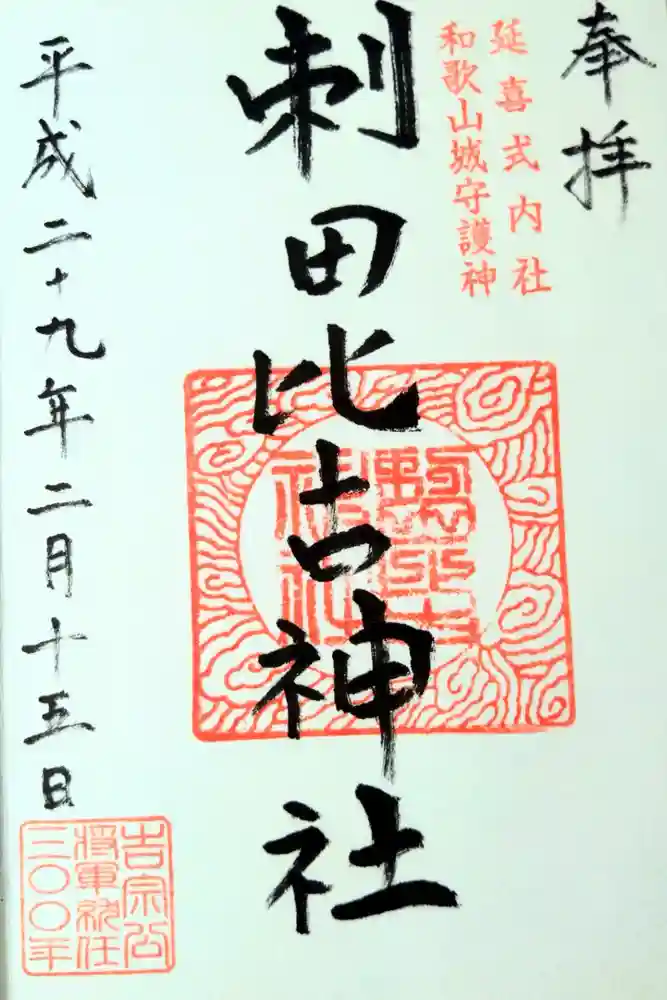 奉拝
延喜式内社
和歌山城守護神
刺田比古神社
平成二十九年二月十五日
吉宗公
将軍就任
三〇〇年